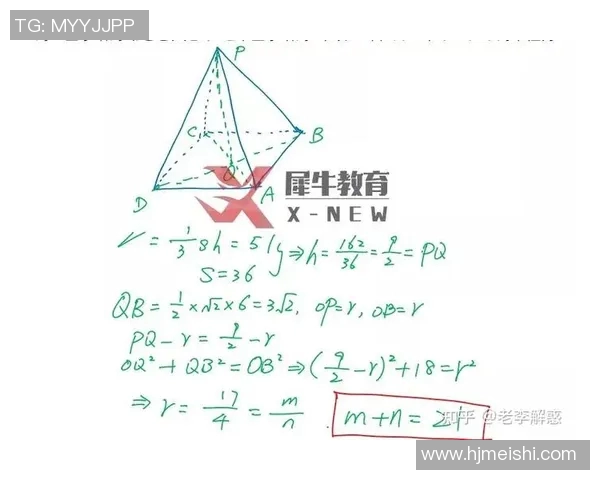 TG: MYYJJPP
P
C
B
Q
D
A
犀牛教育
X-NEW
V = 1/3 Sh = 54 ⇒ h = 162/36 = 9/2 = PQ
S = 36
QB = 1/2 × √2 × 6 = 3√2, OP = r, OB = r
PQ - r = 9/2 - r
OQ² + QB² = OB² ⇒ (9/2 - r)² + 18 = r²
⇒ r = 17/4 = m/n. m+n = 21
知乎 @老李解惑
www.hjmeishi.com